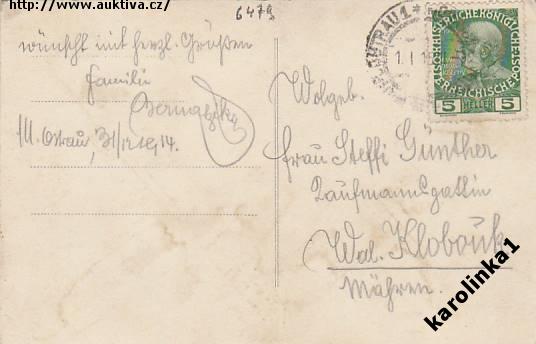 http://www.auktiva.cz/
6479
wünscht mit herzl. Grüßen
Familie
M. Ostrau, 31/12 14.
OSTRAU 1
1. I. 15
KAISERLICHE KÖNIGLICHE
ÖSTERREICHISCHE POST
5 HELLER 5
Wolgeb.
Frau Steffi Günther
Kaufmannsgattin
Wal. Klobouk
Mähren.
karolinka1